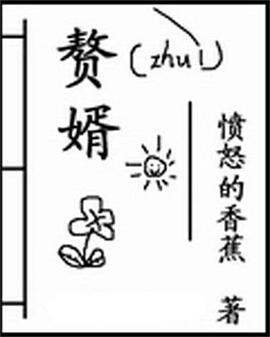 赘婿
(zhui)
愤怒的香蕉 著